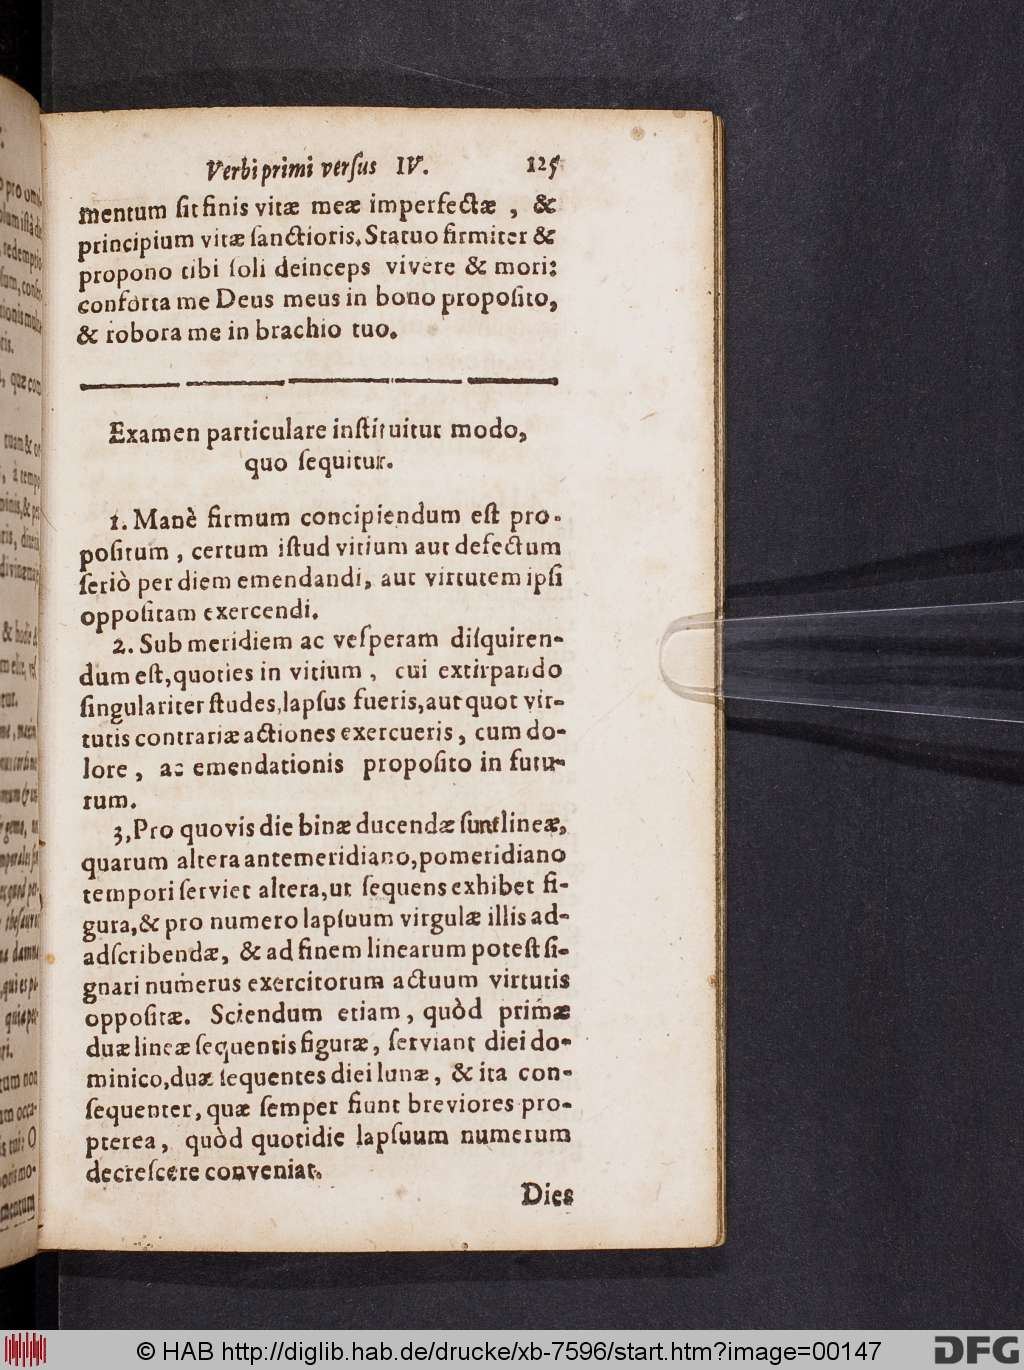 Verbi primi versus IV. 125
mentum sit finis vitæ meæ imperfectæ , &
principium vitæ sanctioris. Statuo firmiter &
propono tibi soli deinceps vivere & mori;
conforta me Deus meus in bono proposito,
& robora me in brachio tuo.
Examen particulare instituitur modo,
quo sequitur.
1. Manè firmum concipiendum est pro-
positum , certum istud vitium aut defectum
seriò per diem emendandi, aut virtutem ipsi
oppositam exercendi.
2. Sub meridiem ac vesperam disquiren-
dum est, quoties in vitium , cui extirpando
singulariter studes, lapsus fueris, aut quot vir-
tutis contrariæ actiones exercueris , cum do-
lore , ac emendationis proposito in futu-
rum.
3, Pro quovis die binæ ducendæ sunt lineæ,
quarum altera antemeridiano, pomeridiano
tempori serviet altera, ut sequens exhibet fi-
gura, & pro numero lapsuum virgulæ illis ad-
adscribendæ, & ad finem linearum potest si-
gnari numerus exercitorum actuum virtutis
oppositæ. Sciendum etiam , quòd primæ
duæ lineæ sequentis figuræ, serviant diei do-
minico, duæ sequentes diei lunæ, & ita con-
sequenter, quæ semper fiunt breviores pro-
pterea , quòd quotidie lapsuum numerum
decrescere conveniat.
Dies
© HAB http://diglib.hab.de/drucke/xb-7596/start.htm?image=00147
DFG